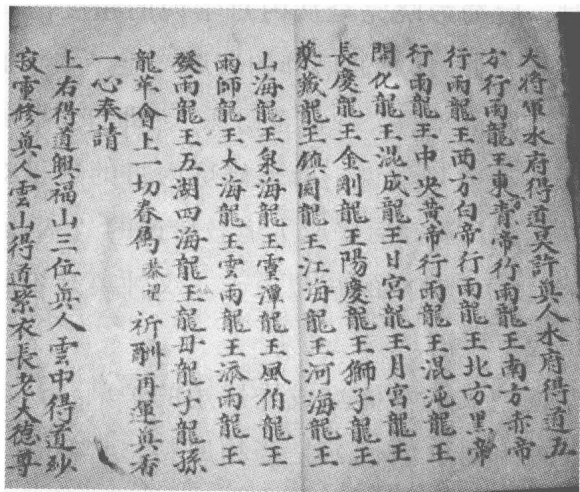 大將軍水府得道吳許真人水府得道五
方行雨龍王東青帝行雨龍王南方赤帝
行雨龍王西方白帝行雨龍王北方黑帝
行雨龍王中央黃帝行雨龍王混沌龍王
開化龍王混成龍王日宮龍王月宮龍王
長慶龍王金剛龍王陽慶龍王獅子龍王
龍王鎮國龍王江海龍王河海龍王
山海龍王泉海龍王靈潭龍王風伯龍王
雨師龍王大海龍王雲雨龍王派雨龍王
發雨龍王五湖四海龍王龍母龍子龍孫
龍華會上一切眷屬恭望祈酬再運真香
一心奉請
上右得道興福山三位真人雲中得道妙
寂雷修真人雲山得道紫衣長老大德尊